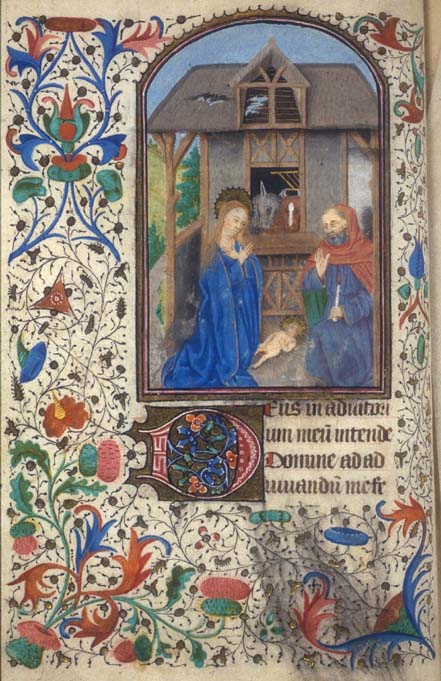 Deus in adiutori
um meū intende
Domine ad ad
iuuandū me fe